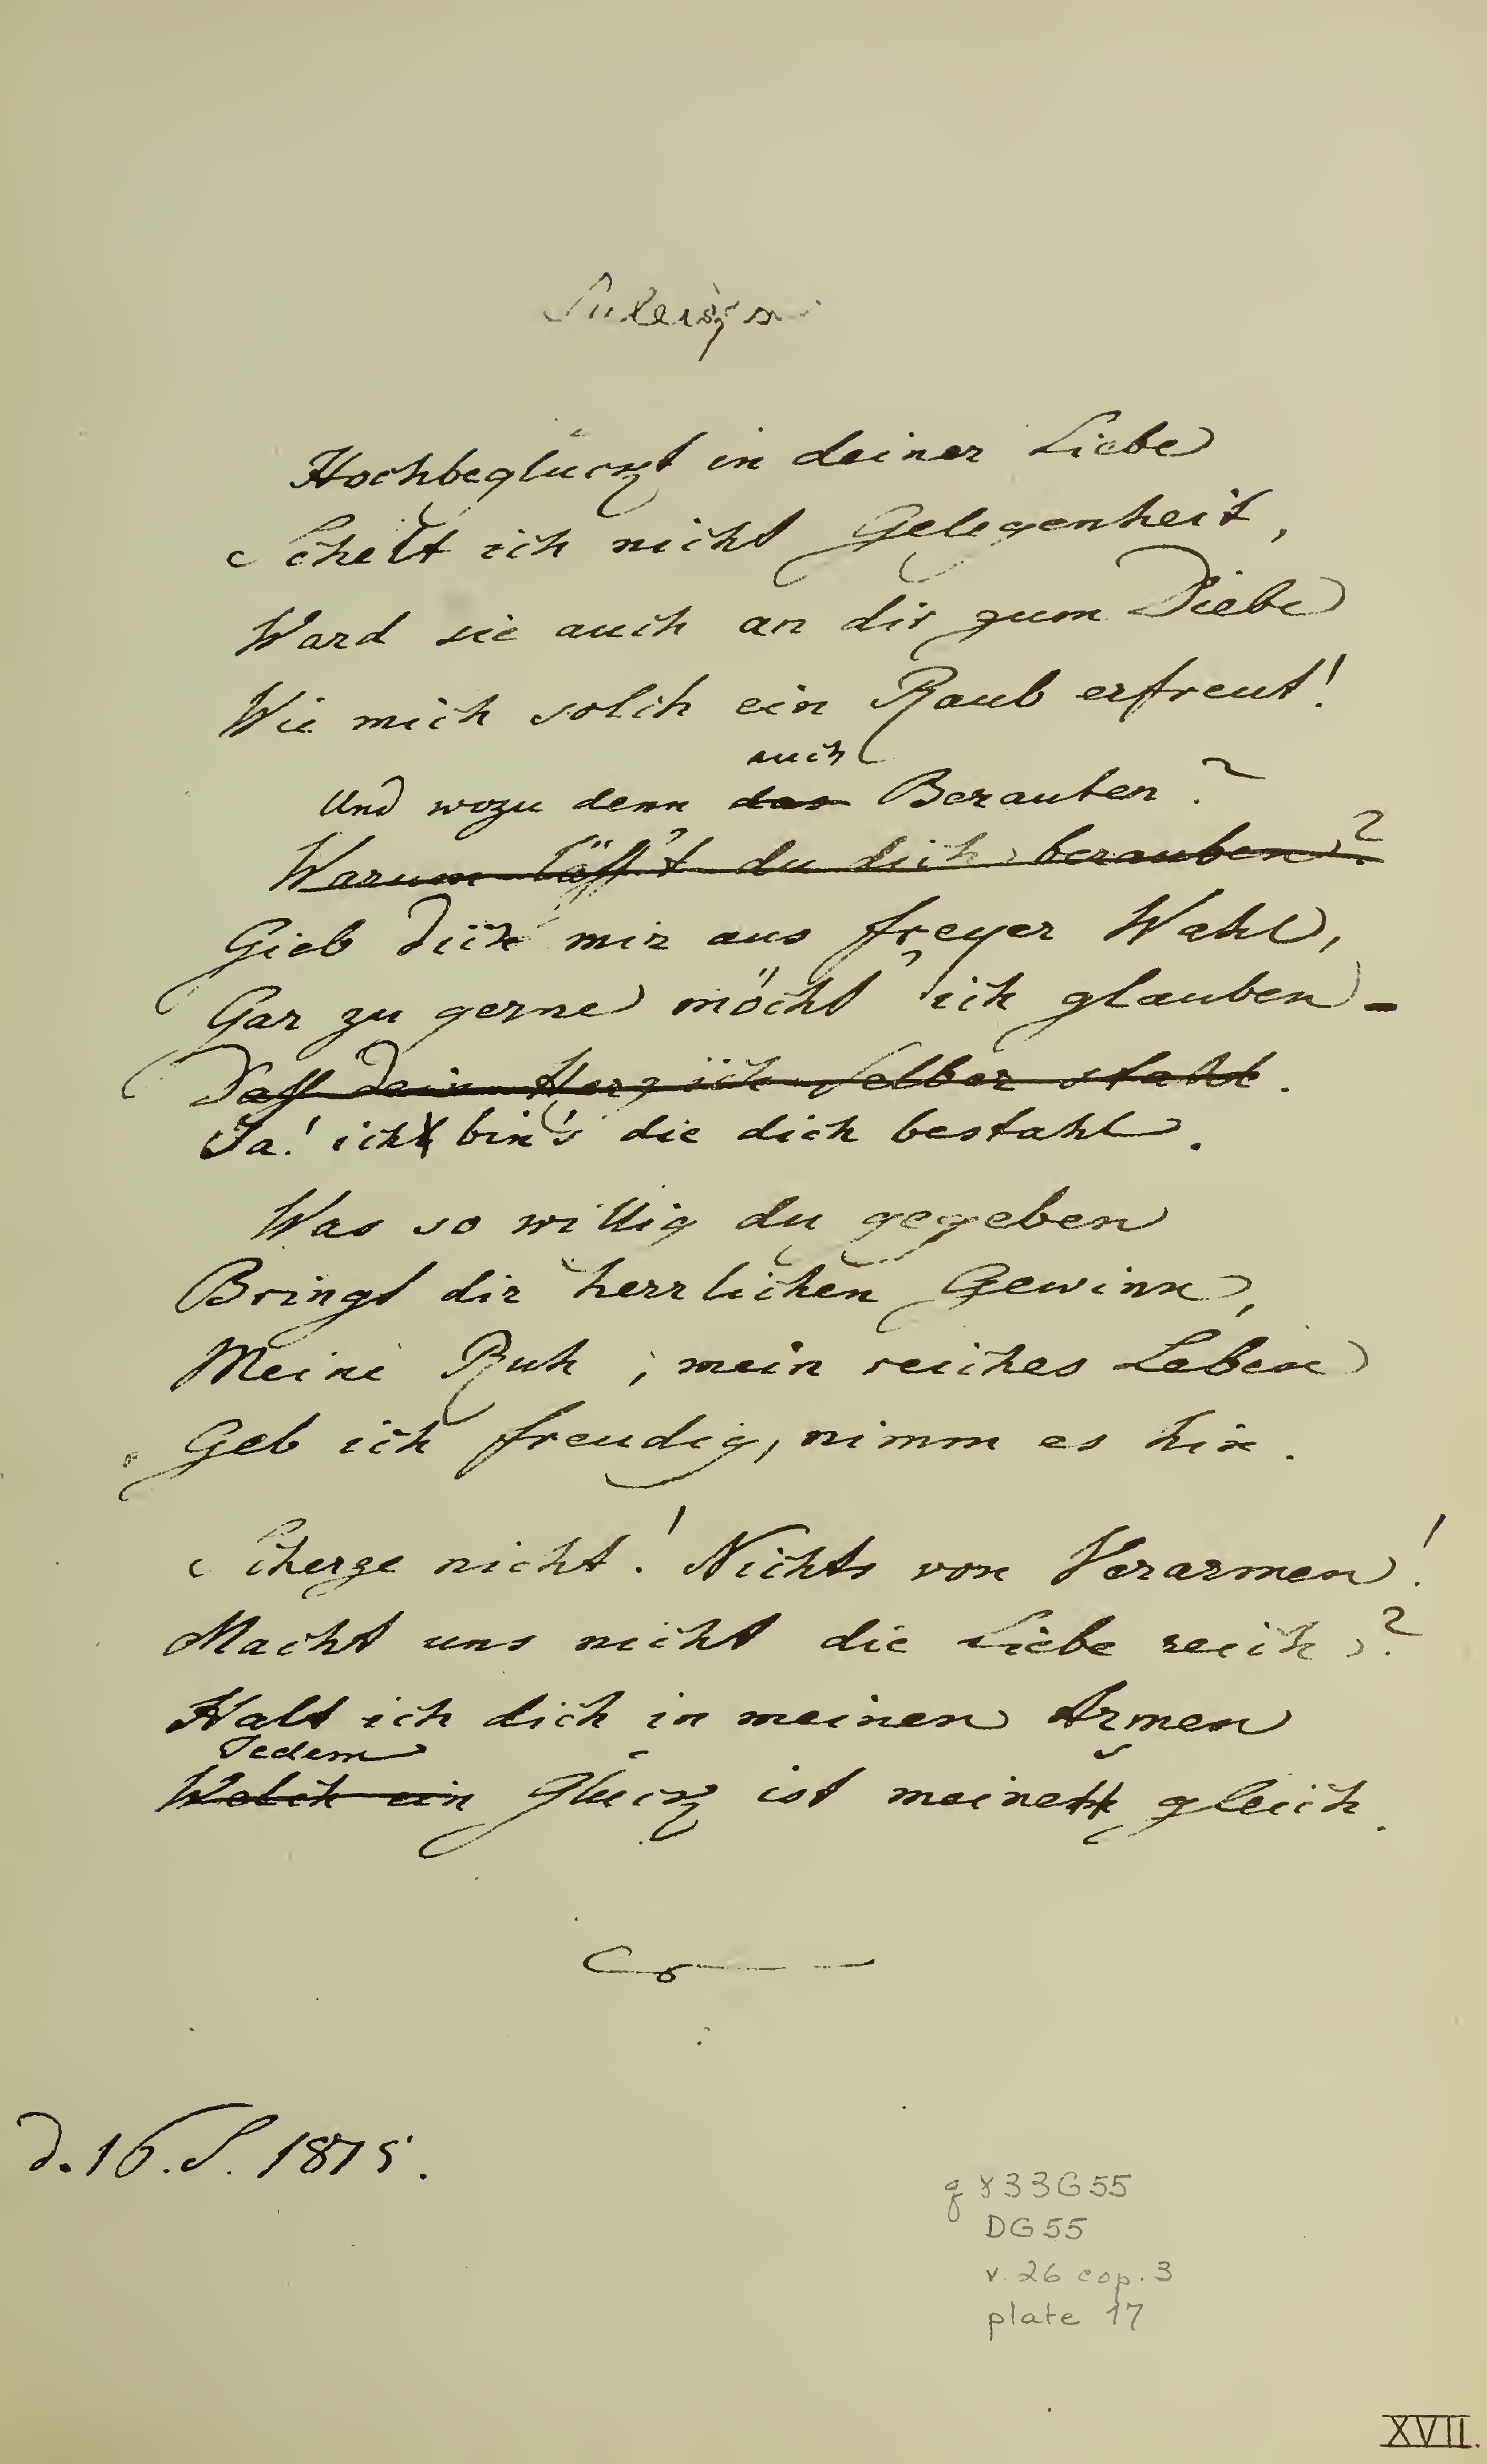 Suleika
Hochbeglückt in deiner Liebe
Schelt ich nicht Gelegenheit,
Ward sie auch an dir zum Diebe
Wie mich solch ein Raub erfreut!
auch
Und wozu denn das Berauben?
Warum läss't du dich berauben?
Gieb dich mir aus freyer Wahl,
Gar zu gerne möcht' ich glauben -
Dass dein Herz ich selber stahl.
Ja! ich bin's die dich bestahl.
Was so willig du gegeben
Bringt dir herrlichen Gewinn,
Meine Ruh, mein reiches Leben
Geb ich freudig, nimm es hin.
Scherze nicht! Nichts von Verarmen!
Macht uns nicht die Liebe reich?
Halt ich dich in meinen Armen
Jedem
Welch ein Glück ist meines gleich.
d. 16. S. 1815.
q 833G55
DG55
v. 26 cop. 3
plate 17
XVII.